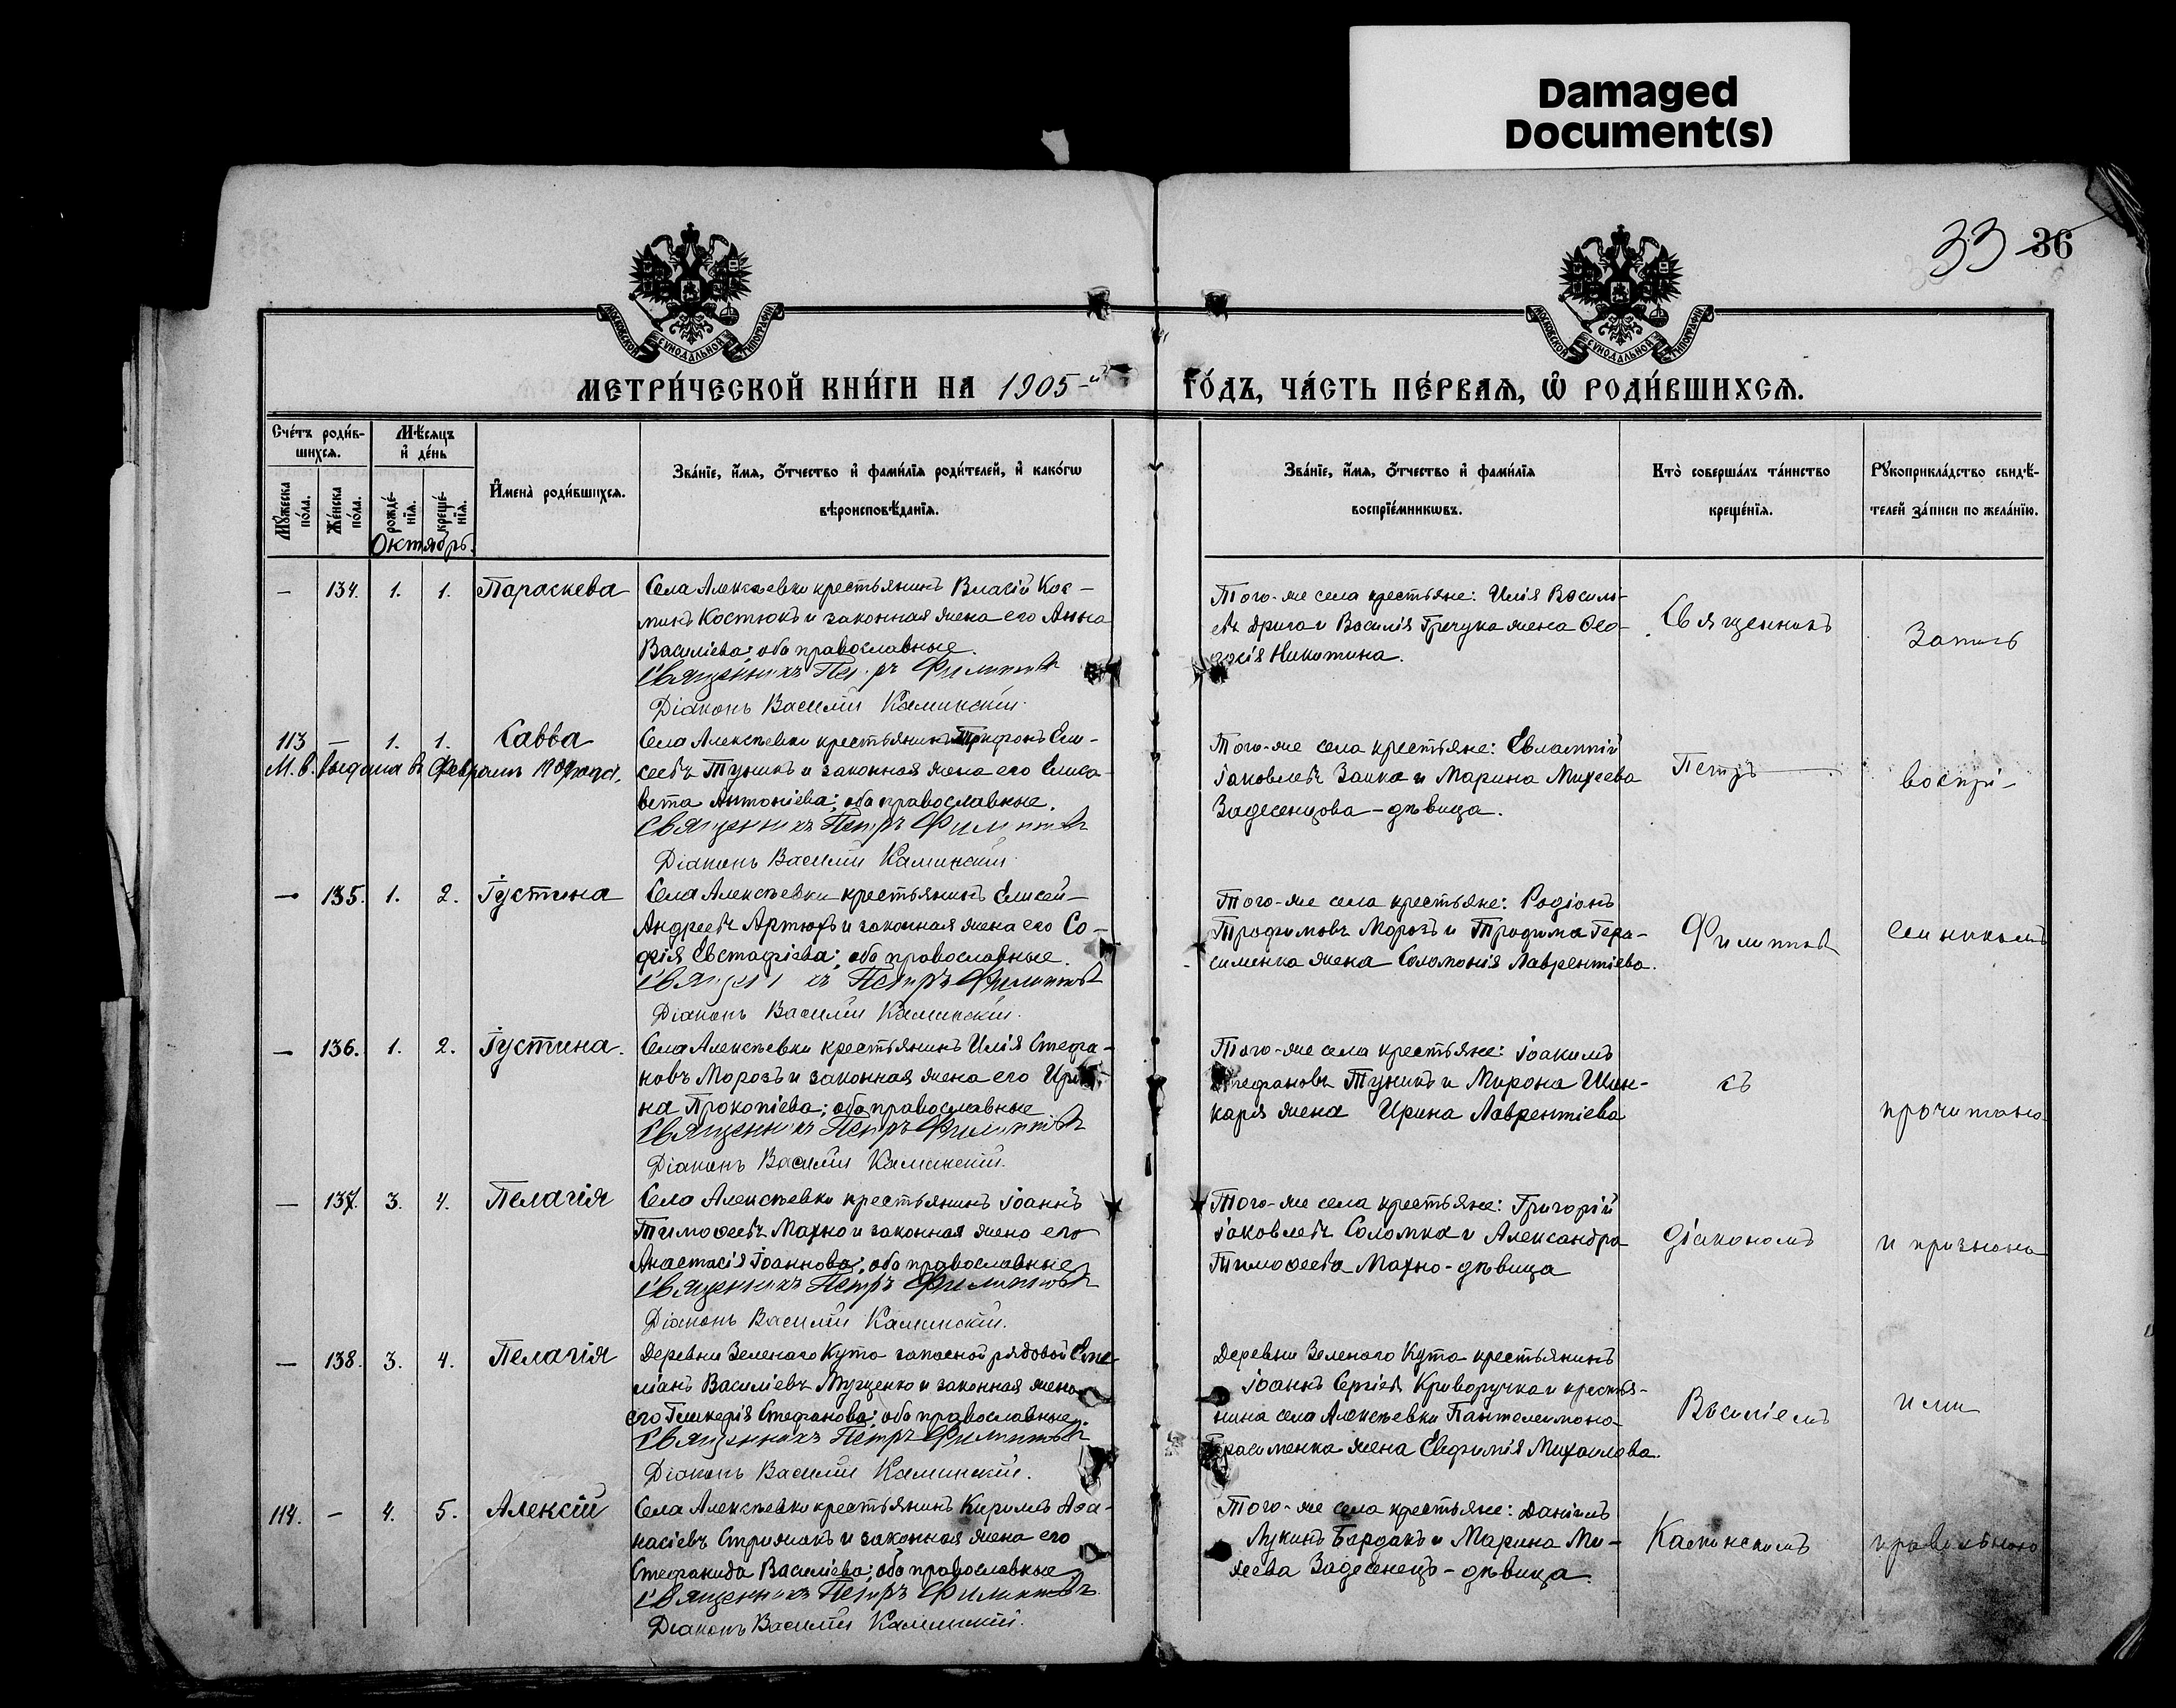 Damaged
Document(s)
33 36
МОСКОВСКОЙ СѴНОДАЛЬНОЙ ТИПОГРАФІИ
МОСКОВСКОЙ СѴНОДАЛЬНОЙ ТИПОГРАФІИ
МЕТРИ́ЧЕСКОЙ КНИ́ГИ НА 1905-й
ГО́ДЪ, ЧА́СТЬ ПЕ́РВАѦ, Ѡ҆ РОДИ́ВШИХСѦ.
Сче́тъ роди́в-
шихсѧ.
Мѣ́сѧцъ
и҆ де́нь
Мꙋ́жеска
по́ла.
Же́нска
по́ла.
рожде́-
нїѧ.
креще́-
нїѧ.
Октябрь.
И҆мена̀ роди́вшихсѧ.
Зва́нїе, и҆́мѧ, ѻ҆́тчество и҆ фами́лїѧ роди́телей, и҆ како́гѡ
вѣроисповѣ́данїѧ.
Зва́нїе, и҆́мѧ, ѻ҆́тчество и҆ фами́лїѧ
воспрїе́мникѡвъ.
Кто̀ соверша́лъ та́инство
креще́нїѧ.
Рꙋкоприкла́дство свидѣ́-
телей за́писи по жела́нїю.
— 134. 1. 1. Параскева
Села Алексѣевки крестьянинъ Власій Кос-
минъ Костюкъ и законная жена его Анна
Василіева; оба православные.
Священникъ Петръ Филиповъ
Діаконъ Василій Каминскій.
Того-же села крестьяне: Илія Василі-
евъ Дрига и Василія Гречука жена Ѳео-
досія Никитина.
113 — 1. 1. Савва
М. в. выдана въ Февралѣ 1909 года.
Села Алексѣевки крестьянинъ Трифонъ Ели-
сеевъ Туникъ и законная жена его Елиса-
вета Антоніева; оба православные.
Священникъ Петръ Филиповъ
Діаконъ Василій Каминскій.
Того-же села крестьяне: Евлампій
Іаковлевъ Заика и Марина Михеева
Задесенцова - дѣвица.
— 135. 1. 2. Іустина
Села Алексѣевки крестьянинъ Елисей
Андреевъ Артюхъ и законная жена его Со-
фія Евстафіева; оба православные.
Священникъ Петръ Филиповъ
Діаконъ Василій Каминскій.
Того-же села крестьяне: Родіонъ
Трофимовъ Морозъ и Трофима Гера-
сименка жена Соломонія Лаврентіева.
— 136. 1. 2. Іустина.
Села Алексѣевки крестьянинъ Илія Стефа-
новъ Морозъ и законная жена его Ири-
на Прокопіева; оба православные
Священникъ Петръ Филиповъ
Діаконъ Василій Каминскій.
Того-же села крестьяне: Іоакимъ
Стефановъ Туникъ и Мирона Шин-
каря жена Ирина Лаврентіева
— 137. 3. 4. Пелагія
Села Алексѣевки крестьянинъ Іоаннъ
Тимоѳеевъ Махно и законная жена его
Анастасія Іоаннова; оба православные
Священникъ Петръ Филиповъ
Діаконъ Василій Каминскій.
Того-же села крестьяне: Григорій
Іаковлевъ Соломка и Александра
Тимоѳеева Махно - дѣвица
— 138. 3. 4. Пелагія
Деревни Зеленаго Кута запасной рядовой Еми-
ліанъ Василіевъ Мущенко и законная жена
его Гликерія Стефанова; оба православные.
Священникъ Петръ Филиповъ
Діаконъ Василій Каминскій.
Деревни Зеленаго Кута крестьянинъ
Іоаннъ Сергіевъ Криворучка и крестья-
нина села Алексѣевки Пантелеимона
Герасименка жена Евфимія Михаилова.
114. — 4. 5. Алексій
Села Алексѣевки крестьянинъ Кириллъ Аѳа-
насіевъ Стрижакъ и законная жена его
Стефанида Василіева; оба православные
Священникъ Петръ Филиповъ
Діаконъ Василій Каминскій.
Того-же села крестьяне: Даніилъ
Лукинъ Бардакъ и Марина Ми-
хеева Задесенецъ - дѣвица.
Священникъ
Петръ
Филиповъ
съ
діакономъ
Василіемъ
Каминскимъ
Запись
воспрі-
емникомъ
прочитана
и признана
ими
правильною